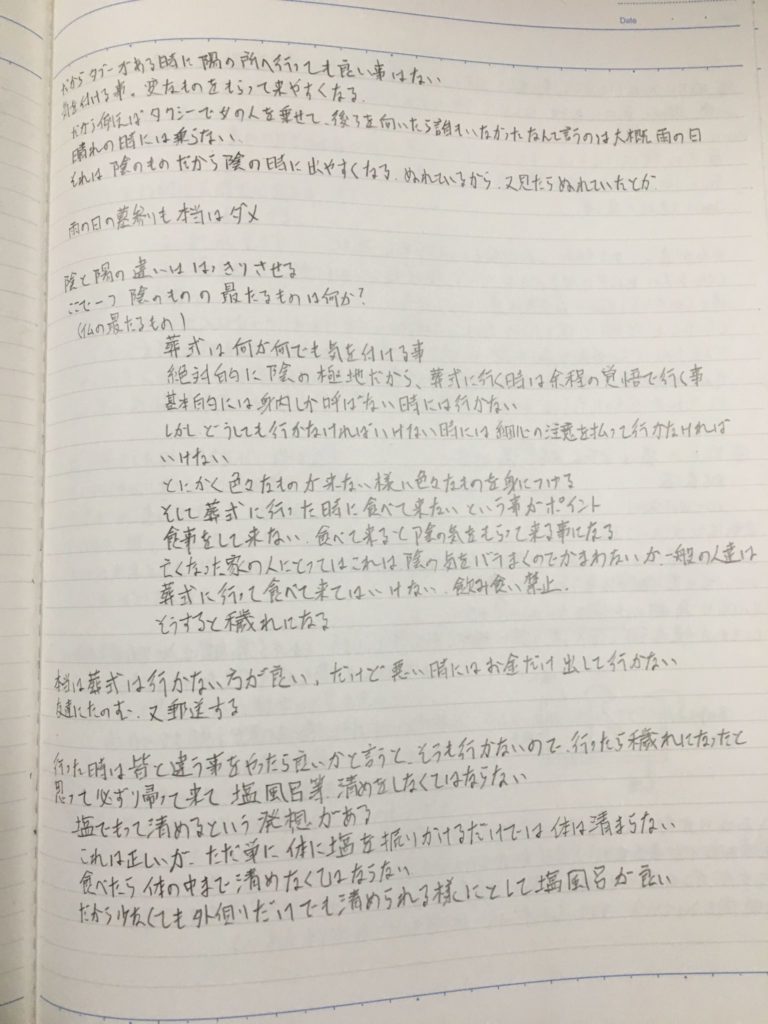 Date
だからタブーがある時に陽の所へ行っても良い事はない
気を付ける事。変なものをもらって来やすくなる。
だから例えばタクシーで女の人を乗せて、後ろを向いたら誰もいなかったなんて言うのは大概雨の日
晴れの時には乗らない、
それは陰のものだから陰の時に出やすくなる、ぬれているから、又見たらぬれていたとか
雨の日の墓参りも本当はダメ
陰と陽の違いははっきりさせる
ここで一つ陰のものの最たるものは何か?
(仏の最たるもの)
葬式は何が何でも気を付ける事
絶対的に陰の極地だから、葬式に行く時は余程の覚悟で行く事
基本的には身内しか呼ばない時には行かない
しかしどうしても行かなければいけない時には細心の注意を払って行かなければ
いけない
とにかく色々なものが来ない様に色々なものを身につける
そして葬式に行った時に食べて来ないという事がポイント
食事をして来ない、食べて来ると陰の気をもらって来る事になる
亡くなった家の人にとってはこれは陰の気をバラまくのでかまわないが、一般の人達は
葬式に行って食べて来てはいけない、飲み食い禁止.
そうすると穢れになる
本当は葬式は行かない方が良い、だけど悪い時にはお金だけ出して行かない
友達にたのむ、又郵送する
行った時は皆と違う事をやったら良いかと言うと、そうも行かないので、行ったら穢れになったと
思って必ず帰って来て塩風呂等、清めをしなくてはならない
塩でもって清めるという発想がある
これは正しいが、ただ単に体に塩を振りかけるだけでは体は清まらない
食べたら体の中まで清めなくてはならない
だから少なくても外側だけでも清められる様にとして塩風呂が良い